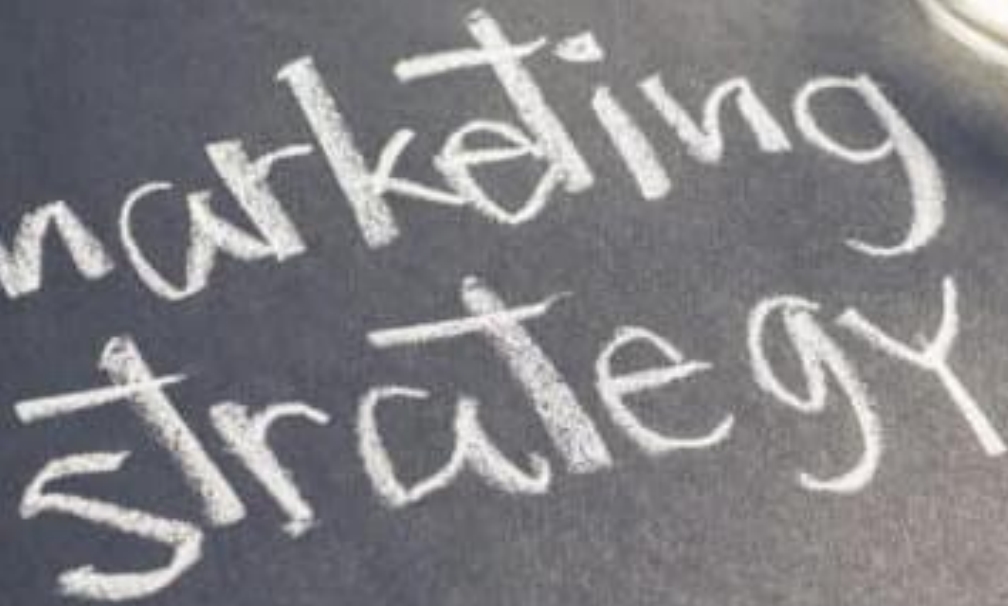 marketing
strategy